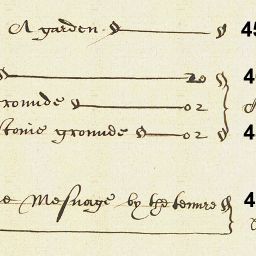 A garden 45
20 4
grounde 02
stonie grounde 02 4
Mesuage by the tenure 4